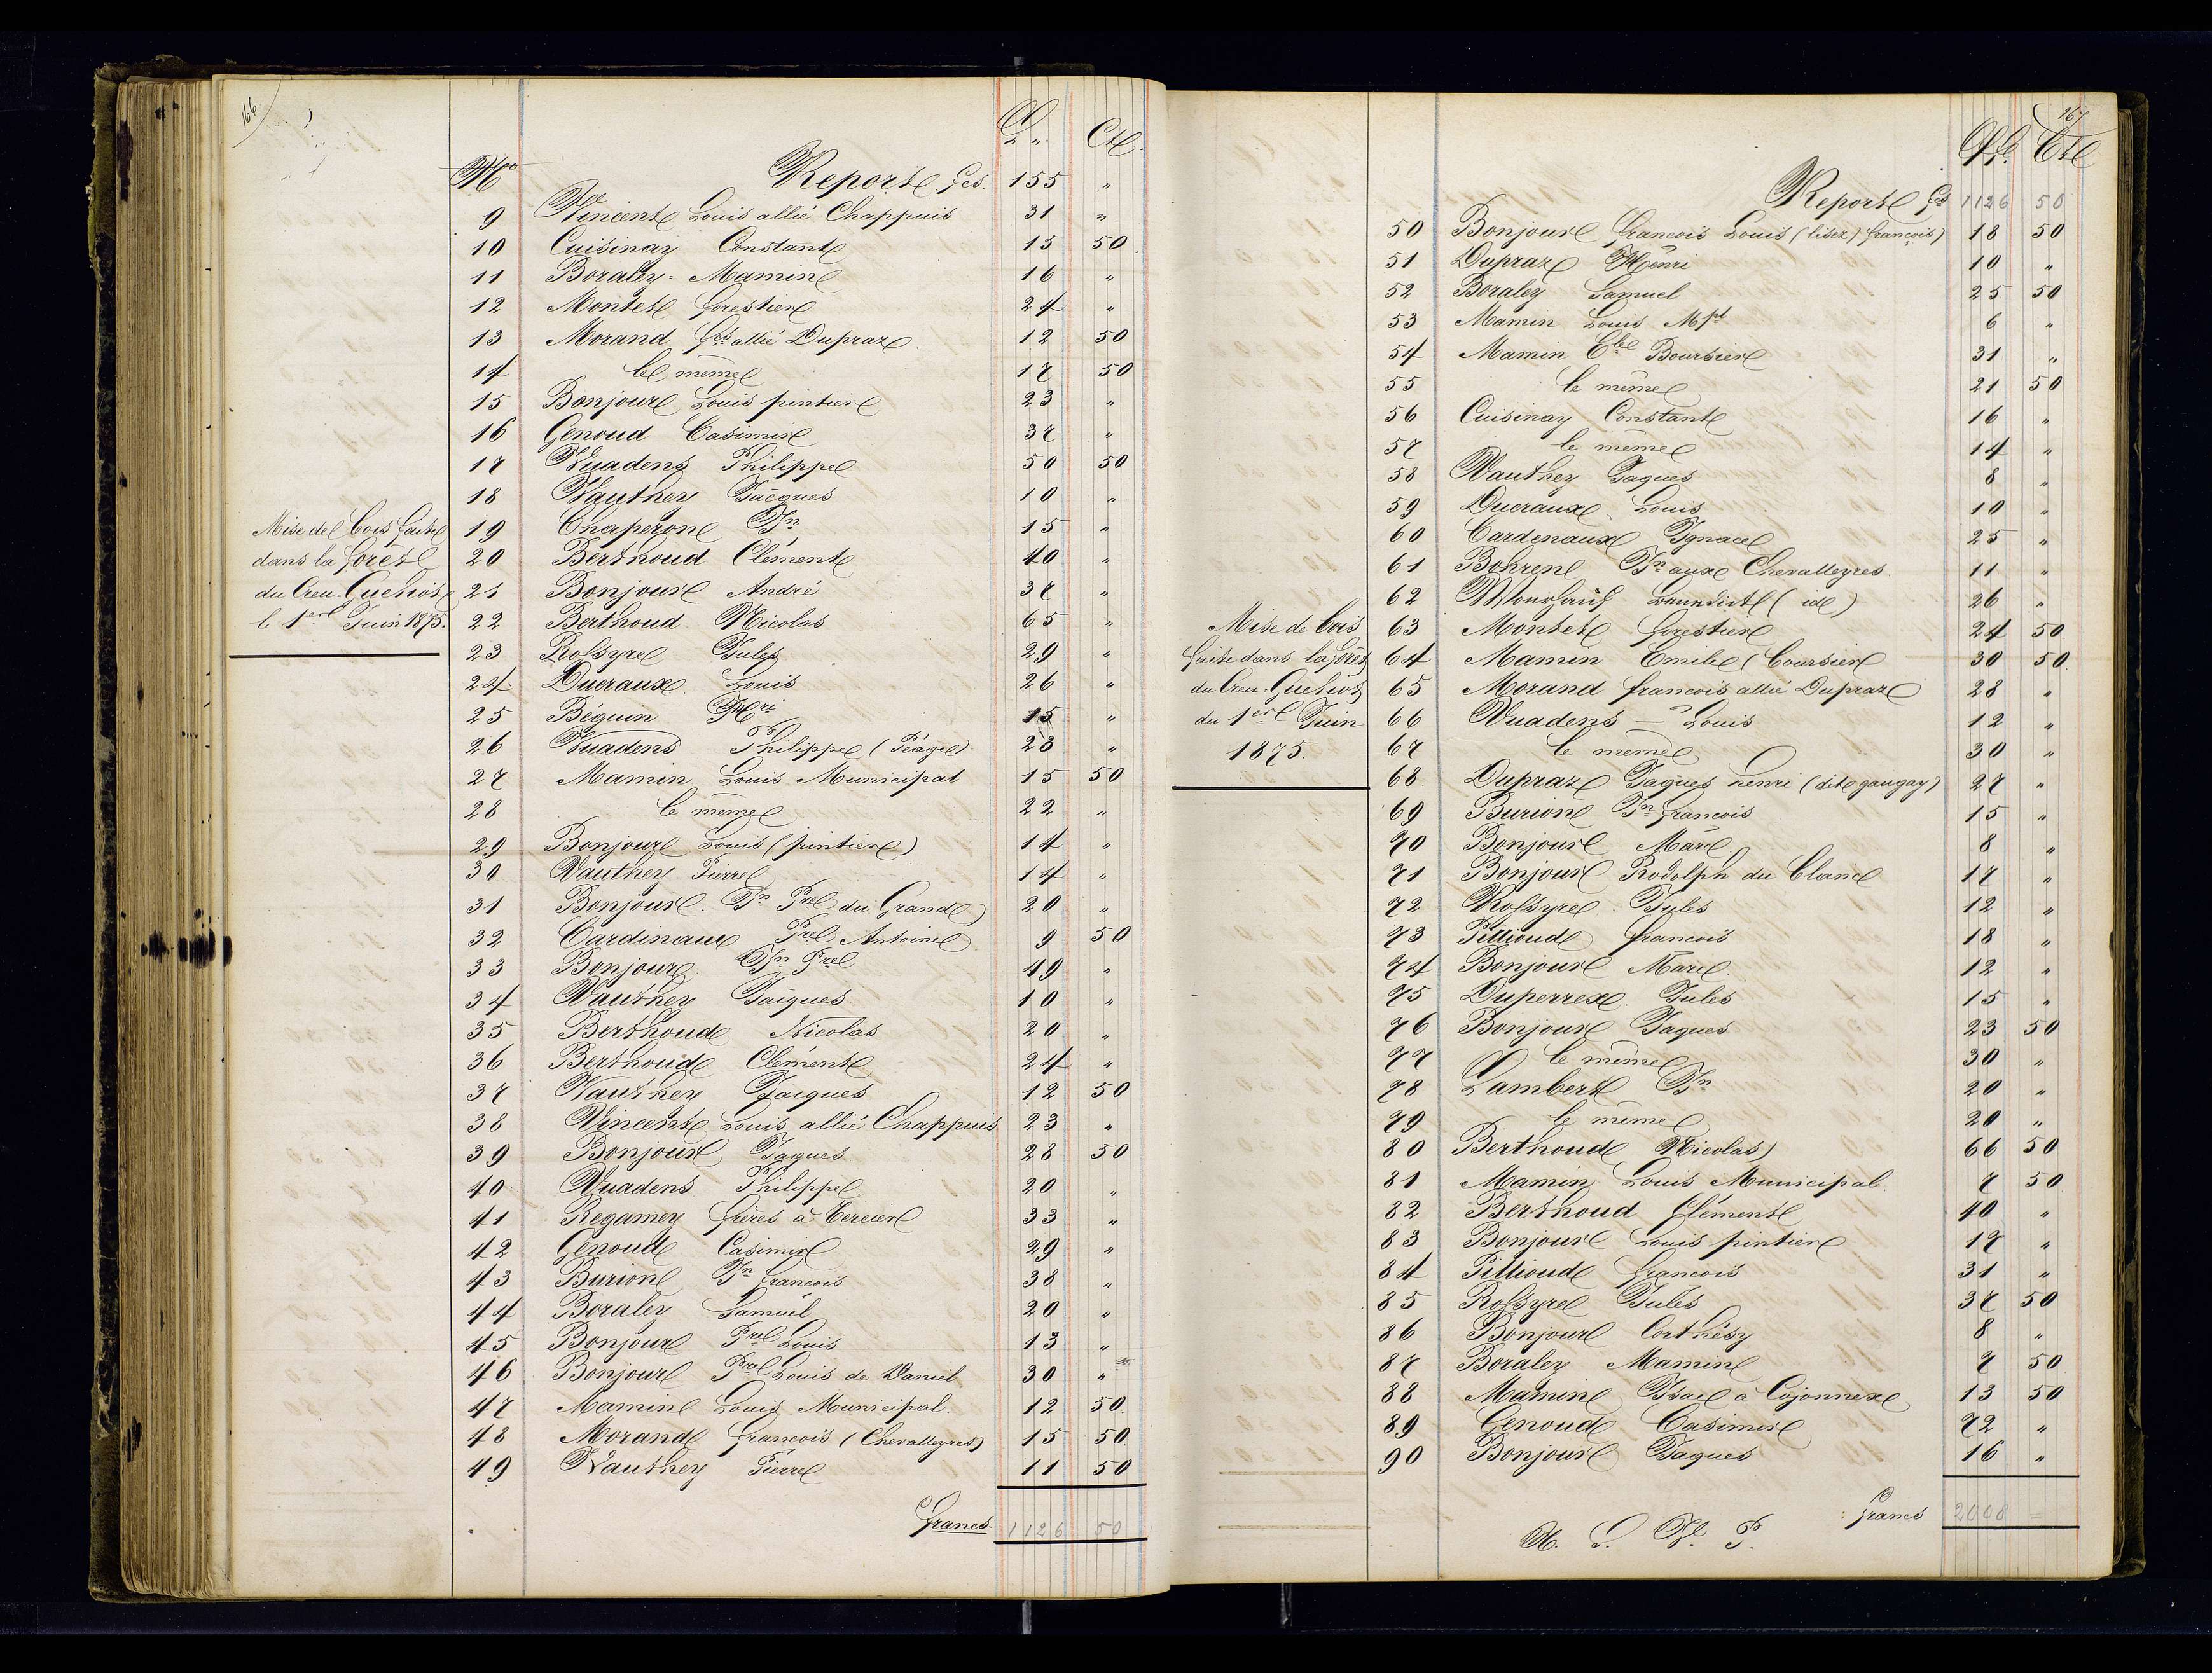 166
Fr. Cts
No Report fcs. 155 "
9 Vincent Louis allié Chappuis 31 "
10 Cuisinay Constant 15 50
11 Boraley-Mamin 16 "
12 Montet forestier 24 "
13 Morand fçs allié Dupraz 12 50
14 le même 17 50
15 Bonjour Louis pintier 23 "
16 Genoud Casimir 37 "
17 Vuadens Philippe 50 50
18 Vauthey Jacques 10 "
Mise de bois faite 19 Chaperon Jn 15 "
dans la foret 20 Berthoud Clément 40 "
du Creu-Guehios 21 Bonjour André 37 "
le 1er Juin 1875. 22 Berthoud Nicolas 65 "
23 Rossyre Jules 29 "
24 Ducraux Louis 26 "
25 Béguin Hri 15 "
26 Vuadens Philippe (Péage) 23 "
27 Mamin Louis Municipal 15 50
28 le même 22 "
29 Bonjour Louis (pintier) 14 "
30 Vauthey Pierre 14 "
31 Bonjour Jn Pre du Grand) 20 "
32 Cardinaux Pre Antoine 9 50
33 Bonjour Jn Pre 49 "
34 Vauthey Jacques 10 "
35 Berthoud Nicolas 20 "
36 Berthoud Clément 24 "
37 Vauthey Jacques 12 50
38 Vincent Louis allié Chappuis 23 "
39 Bonjour Jaques 28 50
40 Vuadens Philippe 20 "
41 Regamey frères à Tercier 33 "
42 Genoud Casimir 29 "
43 Burion Jn francois 38 "
44 Boraley Samuel 20 "
45 Bonjour Pre Louis 13 "
46 Bonjour Pre Louis de Daniel 30 "
47 Mamin Louis Municipal 12 50
48 Morand francois (Chevalleyres) 15 50
49 Vauthey Pierre 11 50
Francs. 1126 50
167
Fr. Cts
Report fcs 1126 50
50 Bonjour francois Louis (lisez) françois) 18 50
51 Dupraz Henri 10 "
52 Boraley Samuel 25 50
53 Mamin Louis Mpl 6 "
54 Mamin Ele Boursier 31 "
55 le même 21 50
56 Cuisinay Constant 16 "
57 le même 14 "
58 Vauthey Jaques 8 "
59 Ducraux Louis 10 "
60 Cardenaux Ignace 25 "
61 Bohren Jn aux Chevalleyres 11 "
62 (id) 26 "
Mise de bois 63 Montet forestier 24 50
faite dans la forêt 64 Mamin Emile (boursier 30 50
du Creu-Guehios 65 Morand francois allié Dupraz 28 "
du 1er Juin 66 Vuadens — Louis 12 "
1875. 67 le même 30 "
68 Dupraz Jaques henri (dit gaugay) 27 "
69 Burion Jn francois 15 "
70 Bonjour Marc 8 "
71 Bonjour Rodolph du Clanc 17 "
72 Rossyre Jules 12 "
73 Pittioud francois 18 "
74 Bonjour Marc 12 "
75 Duperrex Jules 15 "
76 Bonjour Jaques 23 50
77 le même 30 "
78 Lambert Jn 20 "
79 le même 20 "
80 Berthoud Nicolas) 66 50
81 Mamin Louis Municipal 7 50
82 Berthoud Clément 40 "
83 Bonjour Louis pintier 17 "
84 Pittioud francois 31 "
85 Rossyre Jules 37 50
86 Bonjour Corthésy 8 "
87 Boraley Mamin 7 50
88 Mamin Isac à Cojonnex 13 50
89 Genoud Casimir 72 "
90 Bonjour Jaques 16 "
francs 2008 =